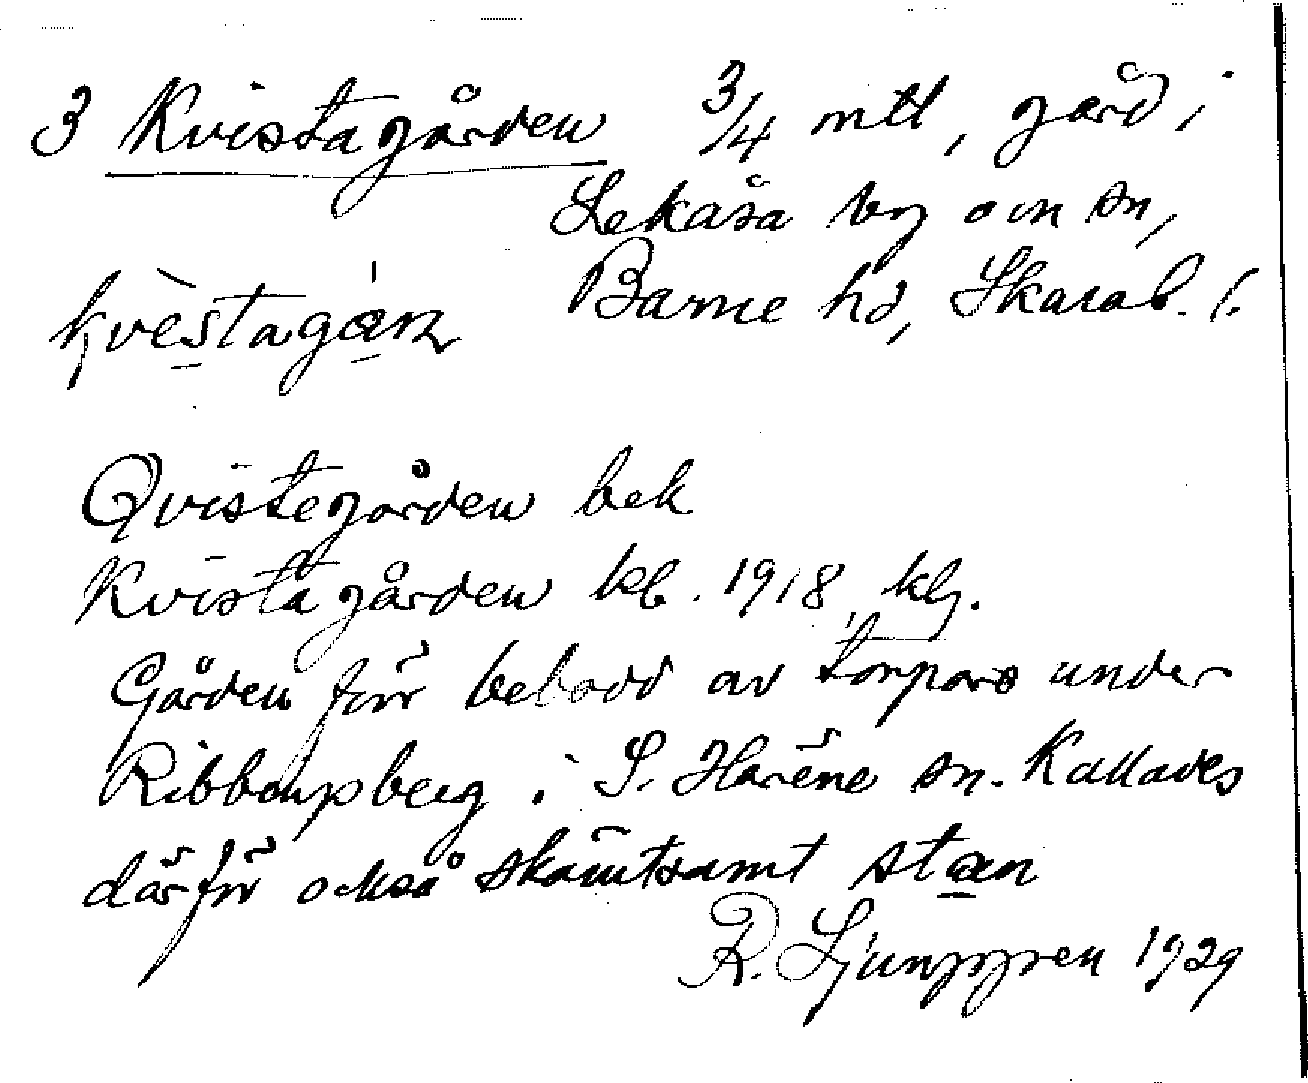 3 Kvistagården 3/4 mtl, gård i
Lekåsa by och sn,
Barne hd, Skarab. l.
kvèstagán
Qvistegården bek
Kvistagården kb. 1918, klg.
Gården förr bebodd av torpare under
Ribbingsberg i S. Härene sn. Kallades
därför också skämtsamt stan
R. Ljunggren 1929